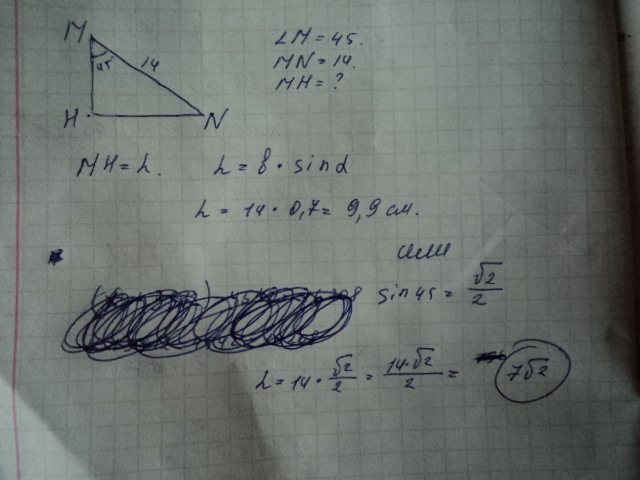 M
45
14
H
N
∠M = 45.
MN = 14.
MH = ?
MH = h. h = b · sin α
h = 14 · 0,7 = 9,9 см.
или
sin 45 = √2/2
h = 14 · √2/2 = 14·√2/2 = 7√2